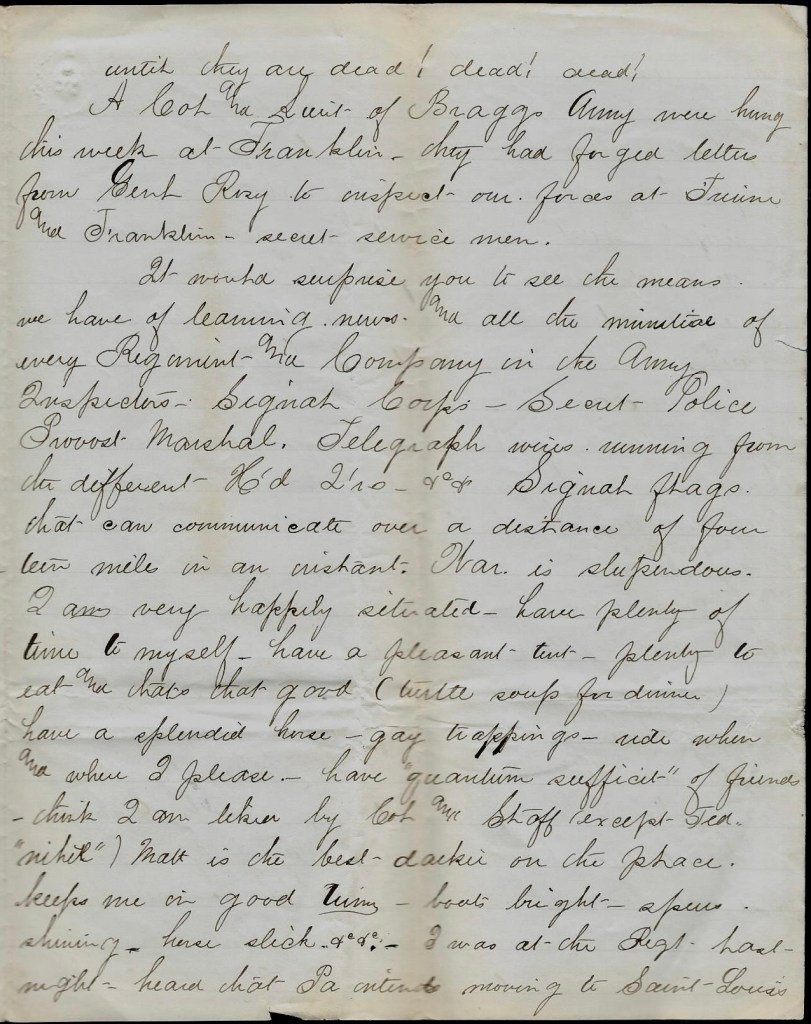 until they are dead! dead! dead!
A Col and Lieut of Braggs Army were hung
this week at Franklin - they had forged letters
from Genl Rosy to inspect our forces at Triune
and Franklin - secret service men.
It would surprise you to see the means
we have of learning news. and all the minutiae of
every Regiment and Company in the Army
Inspectors - Signal Corps - Secret Police
Provost Marshal. Telegraph wires running from
the different H'd Q'rs - &c& Signal flags.
that can communicate over a distance of four
teen miles in an instant. War. is stupendous.
I am very happily situated - have plenty of
time to myself - have a pleasant tent - plenty to
eat and thats that good (turtle soup for dinner)
have a splendid horse - gay trappings - ride when
and where I please. - have "quantum sufficit" of friends
- think I am liked by Col and Staff (except Ted.
"nihil") Matt is the best darkie on the place.
keeps me in good trim - boots bright - spurs
shining - horse slick. &c &c. - I was at the Regt last
night - heard that Pa intends moving to Saint Louis